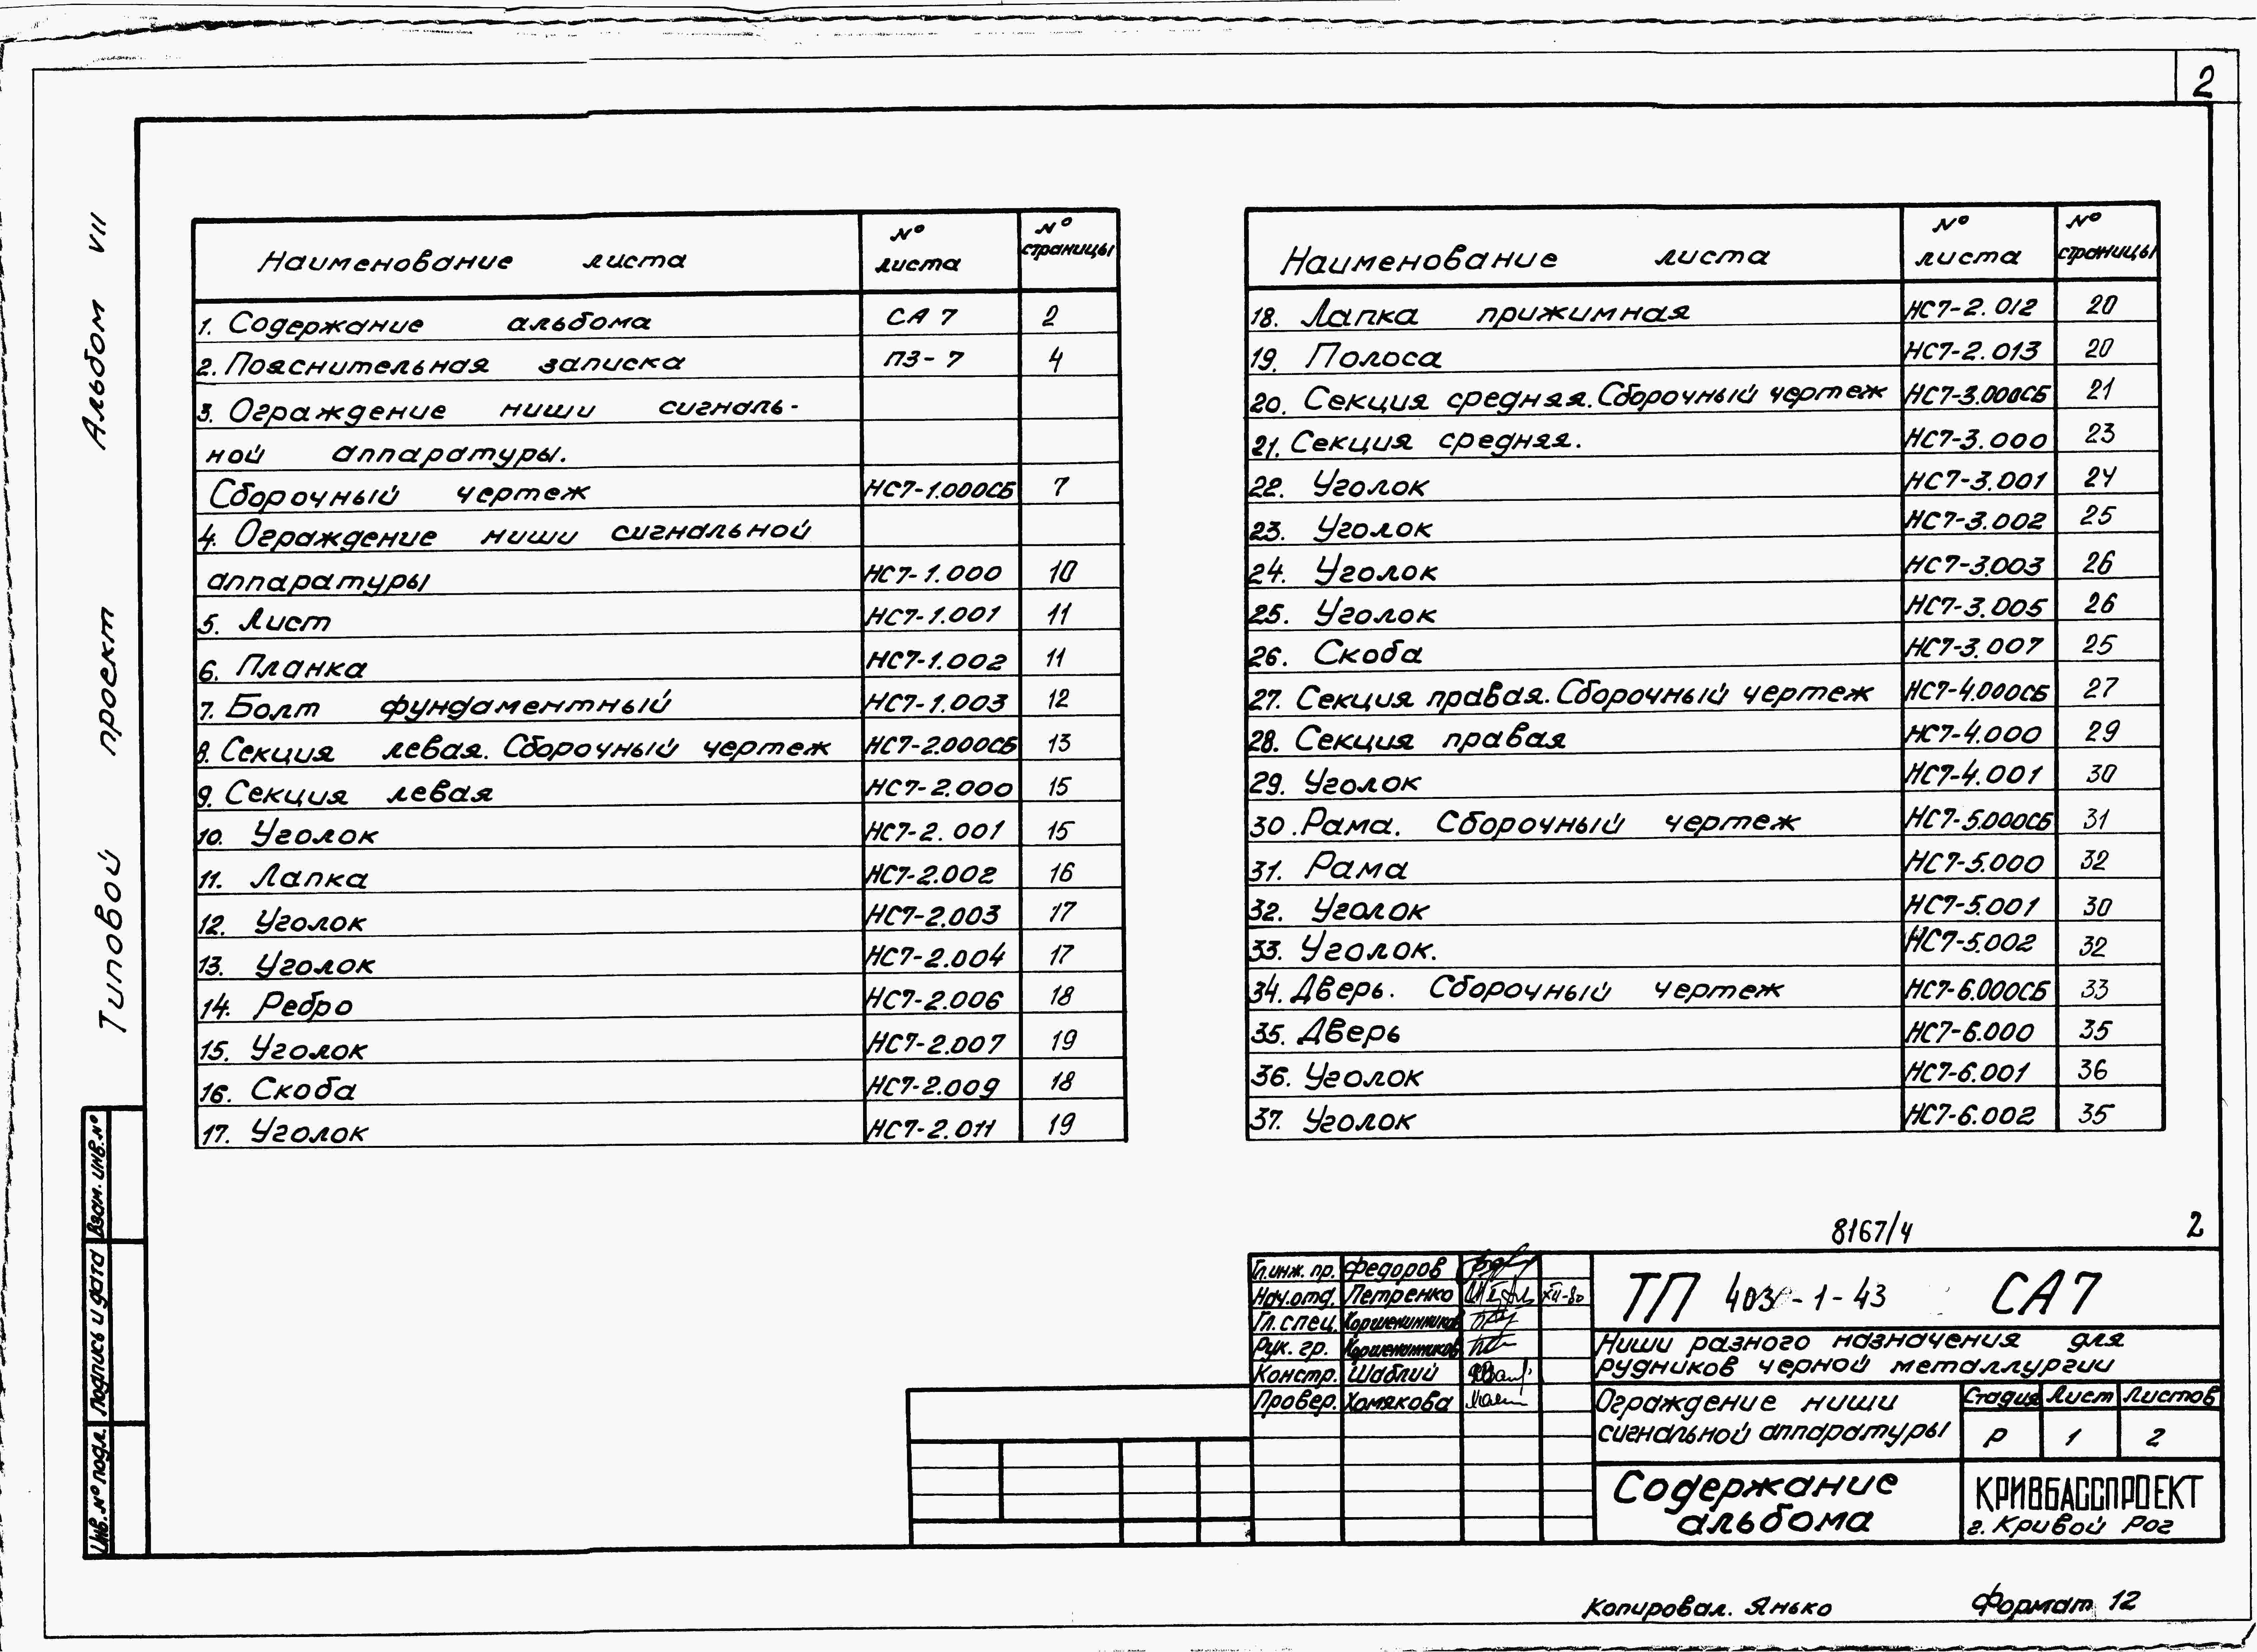 2
Типовой проект Альбом VII
Наименование листа № листа № страницы
1. Содержание альбома СА 7 2
2. Пояснительная записка ПЗ-7 4
3. Ограждение ниши сигналь-
ной аппаратуры.
Сборочный чертеж НС7-1.000СБ 7
4. Ограждение ниши сигнальной
аппаратуры НС7-1.000 10
5. Лист НС7-1.001 11
6. Планка НС7-1.002 11
7. Болт фундаментный НС7-1.003 12
8. Секция левая. Сборочный чертеж НС7-2.000СБ 13
9. Секция левая НС7-2.000 15
10. Уголок НС7-2.001 15
11. Лапка НС7-2.002 16
12. Уголок НС7-2.003 17
13. Уголок НС7-2.004 17
14. Ребро НС7-2.006 18
15. Уголок НС7-2.007 19
16. Скоба НС7-2.009 18
17. Уголок НС7-2.011 19
Наименование листа № листа № страницы
18. Лапка прижимная НС7-2.012 20
19. Полоса НС7-2.013 20
20. Секция средняя. Сборочный чертеж НС7-3.000СБ 21
21. Секция средняя. НС7-3.000 23
22. Уголок НС7-3.001 24
23. Уголок НС7-3.002 25
24. Уголок НС7-3.003 26
25. Уголок НС7-3.005 26
26. Скоба НС7-3.007 25
27. Секция правая. Сборочный чертеж НС7-4.000СБ 27
28. Секция правая НС7-4.000 29
29. Уголок НС7-4.001 30
30. Рама. Сборочный чертеж НС7-5.000СБ 31
31. Рама НС7-5.000 32
32. Уголок НС7-5.001 30
33. Уголок. НС7-5.002 32
34. Дверь. Сборочный чертеж НС7-6.000СБ 33
35. Дверь НС7-6.000 35
36. Уголок НС7-6.001 36
37. Уголок НС7-6.002 35
Взам. инв. №
Подпись и дата
Инв. № подл.
8167/4 2
Гл. инж. пр. Федоров
Нач. отд. Петренко XII-80
Гл. спец. Коршенинников
Рук. гр. Коршенинников
Констр. Шаблий
Провер. Хомякова
ТП 403-1-43 СА7
Ниши разного назначения для
рудников черной металлургии
Ограждение ниши
сигнальной аппаратуры
Стадия Лист Листов
Р 1 2
Содержание
альбома
КРИВБАССПРОЕКТ
г. Кривой Рог
Копировал. Янько Формат 12